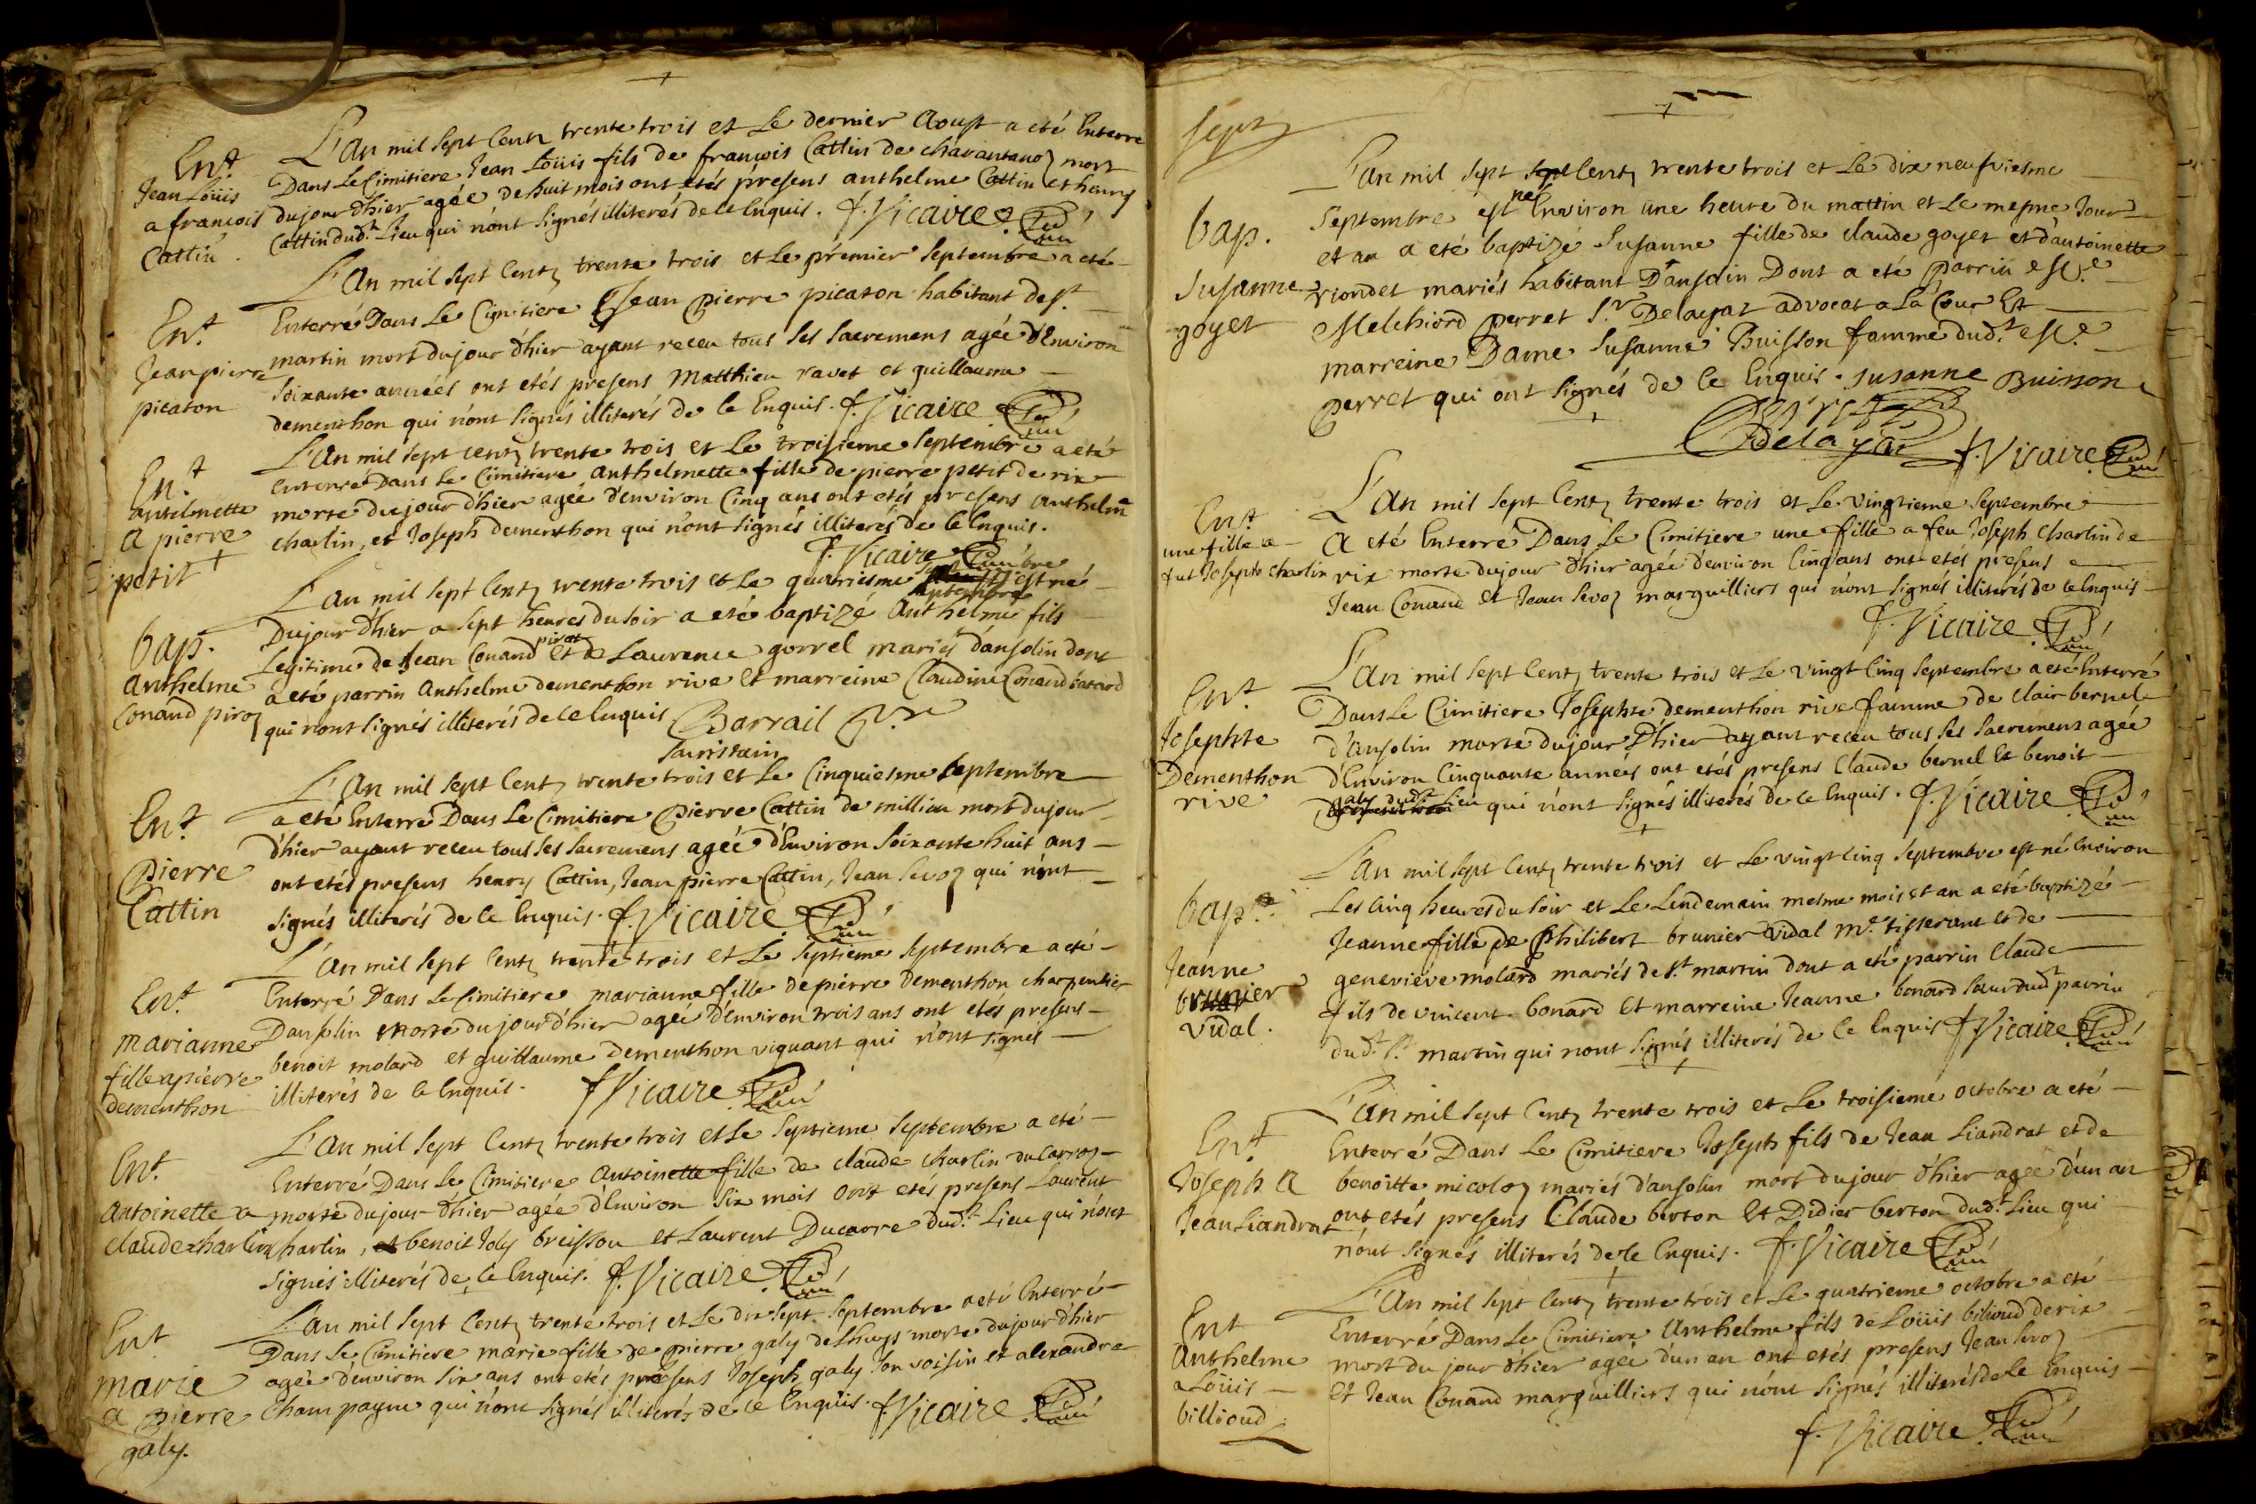 Ent
Jean Loüis
a francois
Cattin.
L'An mil sept Centz trente trois et Le dernier Aoust a eté Enterré
Dans Le Cimitiere Jean Loüis fils de francois Cattin de charantanoz mort
du jour d'hier agée de huit mois ont etés presens anthelme Cattin et henry
Cattin dud.t Lieu qui n'ont signés illiterés de ce Enquis. f. Vicaire
Ent
Jean pierre
picaton
L'An mil sept Centz trente trois et Le prémier septembre a eté
Enterré Dans Le Cimitiere Jean Pierre picaton habitant de st
martin mort du jour d'hier ayant receu tous ses sacremens agée d'Environ
soixante années ont etés presens Matthieu ravet et guillaume
dementhon qui n'ont signés illiterés de ce Enquis. f. Vicaire
Ent
antelmette
a pierre
petit
L'An mil sept centz trente trois et Le troisieme septembre a eté
enterré Dans Le Cimitiere anthelmette fille de pierre petit de rix
morte du jour d'hier agée d'environ Cinq ans ont etés presens Anthelme
charlin, et Joseph dementhon qui n'ont signés illiterés de ce Enquis.
f. Vicaire
bap.
Anthelme
Conand piroz
L'an mil sept Centz trente trois et Le quatriesme septembre est né
Du jour d'hier a sept heures du soir a eté baptizé Anthelme fils
Legitime de Jean Conand piroz et de Laurence gorrel mariés d'ansolin dont
a eté parrin Anthelme dementhon rive et marreine Claudine Conand batard
qui n'ont signés illiterés de ce Enquis Barrail
sacristain
Ent
Pierre
Cattin
L'An mil sept Centz trente trois et Le Cinquiesme septembre
a eté Enterré Dans Le Cimitiere Pierre Cattin de millieu mort du jour
d'hier ayant receu tous ses sacremens agée d'Environ soixante huit ans
ont etés presens henry Cattin, Jean pierre Cattin, Jean sevoz qui n'ont
signés illiterés de ce Enquis. f. Vicaire
Ent
marianne
fille a pierre
dementhon
L'An mil sept Centz trente trois et Le septieme septembre a eté
Enterré Dans Le Cimitiere marianne fille de pierre dementhon charpentier
D'ansolin morte du jour d'hier agée d'environ trois ans ont etés presens
benoit molard et guillaume dementhon viguant qui n'ont signés
illiterés de ce Enquis. f. Vicaire
Ent
antoinette a
claude charlin
L'An mil sept Centz trente trois et Le septieme septembre a eté
Enterré Dans Le Cimitiere antoinette fille de claude charlin du Carroz
morte du jour d'hier agée d'Environ six mois ont etés presens Laurent
charlin, et benoit Joly breissou et Laurent Ducarre dud.t Lieu qui n'ont
signés illiterés de ce Enquis. f. Vicaire
Ent
marie
a pierre
galy.
L'an mil sept Centz trente trois et Le dix sept septembre a eté Enterré
Dans Le Cimitiere marie fille de pierre galy de Lhuys morte du jour d'hier
agée d'environ six ans ont etés presens Joseph galy son voisin et alexandre
Champagne qui n'ont signés illiterés de ce Enquis. f. Vicaire
sept
bap.
Susanne
goyet
L'an mil sept sept Centz trente trois et Le dix neufviesme
septembre est né Environ une heure du mattin et Le mesme Jour
et an a eté baptizé Susanne fille de claude goyet et d'antoinette
riondet mariés habitant D'ansolin Dont a eté parrin
Melchiord Perret s.r Delayat advocat a La Cour Et
marreine Dame Susanne Buisson famme dud.t
Perret qui ont signés de ce Enquis. Susanne Buisson
Perret
Delayat f. Vicaire
Ent
une fille a
fut Joseph charlin
L'An mil sept Centz trente trois et Le vingtieme septembre
a eté Enterré Dans Le Cimitiere une fille a feu Joseph Charlin de
rix morte du jour d'hier agée d'environ Cinq ans ont etés presens
Jean Conand et Jean sevoz marguilliers qui n'ont signés illiterés de ce Enquis
f. Vicaire
Ent
Josephte
Dementhon
rive
L'An mil sept Centz trente trois et Le vingt Cinq septembre a eté Enterré
Dans Le Cimitiere Josephte dementhon rive famme de Clair bernel
d'ansolin morte du jour d'hier ayant receu tous ses sacremens agée
d'Environ Cinquante années ont etés presens Claude bernel Et benoit
galy dud.t Lieu qui n'ont signés illiterés de ce Enquis. f. Vicaire
bap.
Jeanne
brunier
vidal.
L'an mil sept Centz trente trois et Le vingt Cinq septembre est né Environ
Les cinq heures du soir et Le Lendemain mesme mois et an a eté baptizé
Jeanne fille de Philibert brunier vidal M.e tisserant et de
genevieve molard mariés de s.t martin dont a eté parrin Claude
fils de vincent bonard et marreine Jeanne bonard soeur dud.t parrin
dud.t s.t martin qui n'ont signés illiterés de ce Enquis f. Vicaire
Ent
Joseph a
Jean Liandrat
L'an mil sept Centz trente trois et Le troisieme octobre a eté
Enterré Dans Le Cimitiere Joseph fils de Jean Liandrat et de
benoitte micoloz mariés d'ansolin mort du jour d'hier agée d'un an
ont etés presens Claude berton Et Didier berton dud.t Lieu qui
n'ont signés illiterés de ce Enquis. f. Vicaire
Ent
Anthelme
a Loüis
billioud
L'An mil sept Centz trente trois et Le quatrieme octobre a eté
Enterré Dans Le Cimitiere Anthelme fils de Loüis billioud de rix
mort du jour d'hier agée d'un an ont etés presens Jean sevoz
Et Jean Conand marguilliers qui n'ont signés illiterés de ce Enquis
f. Vicaire